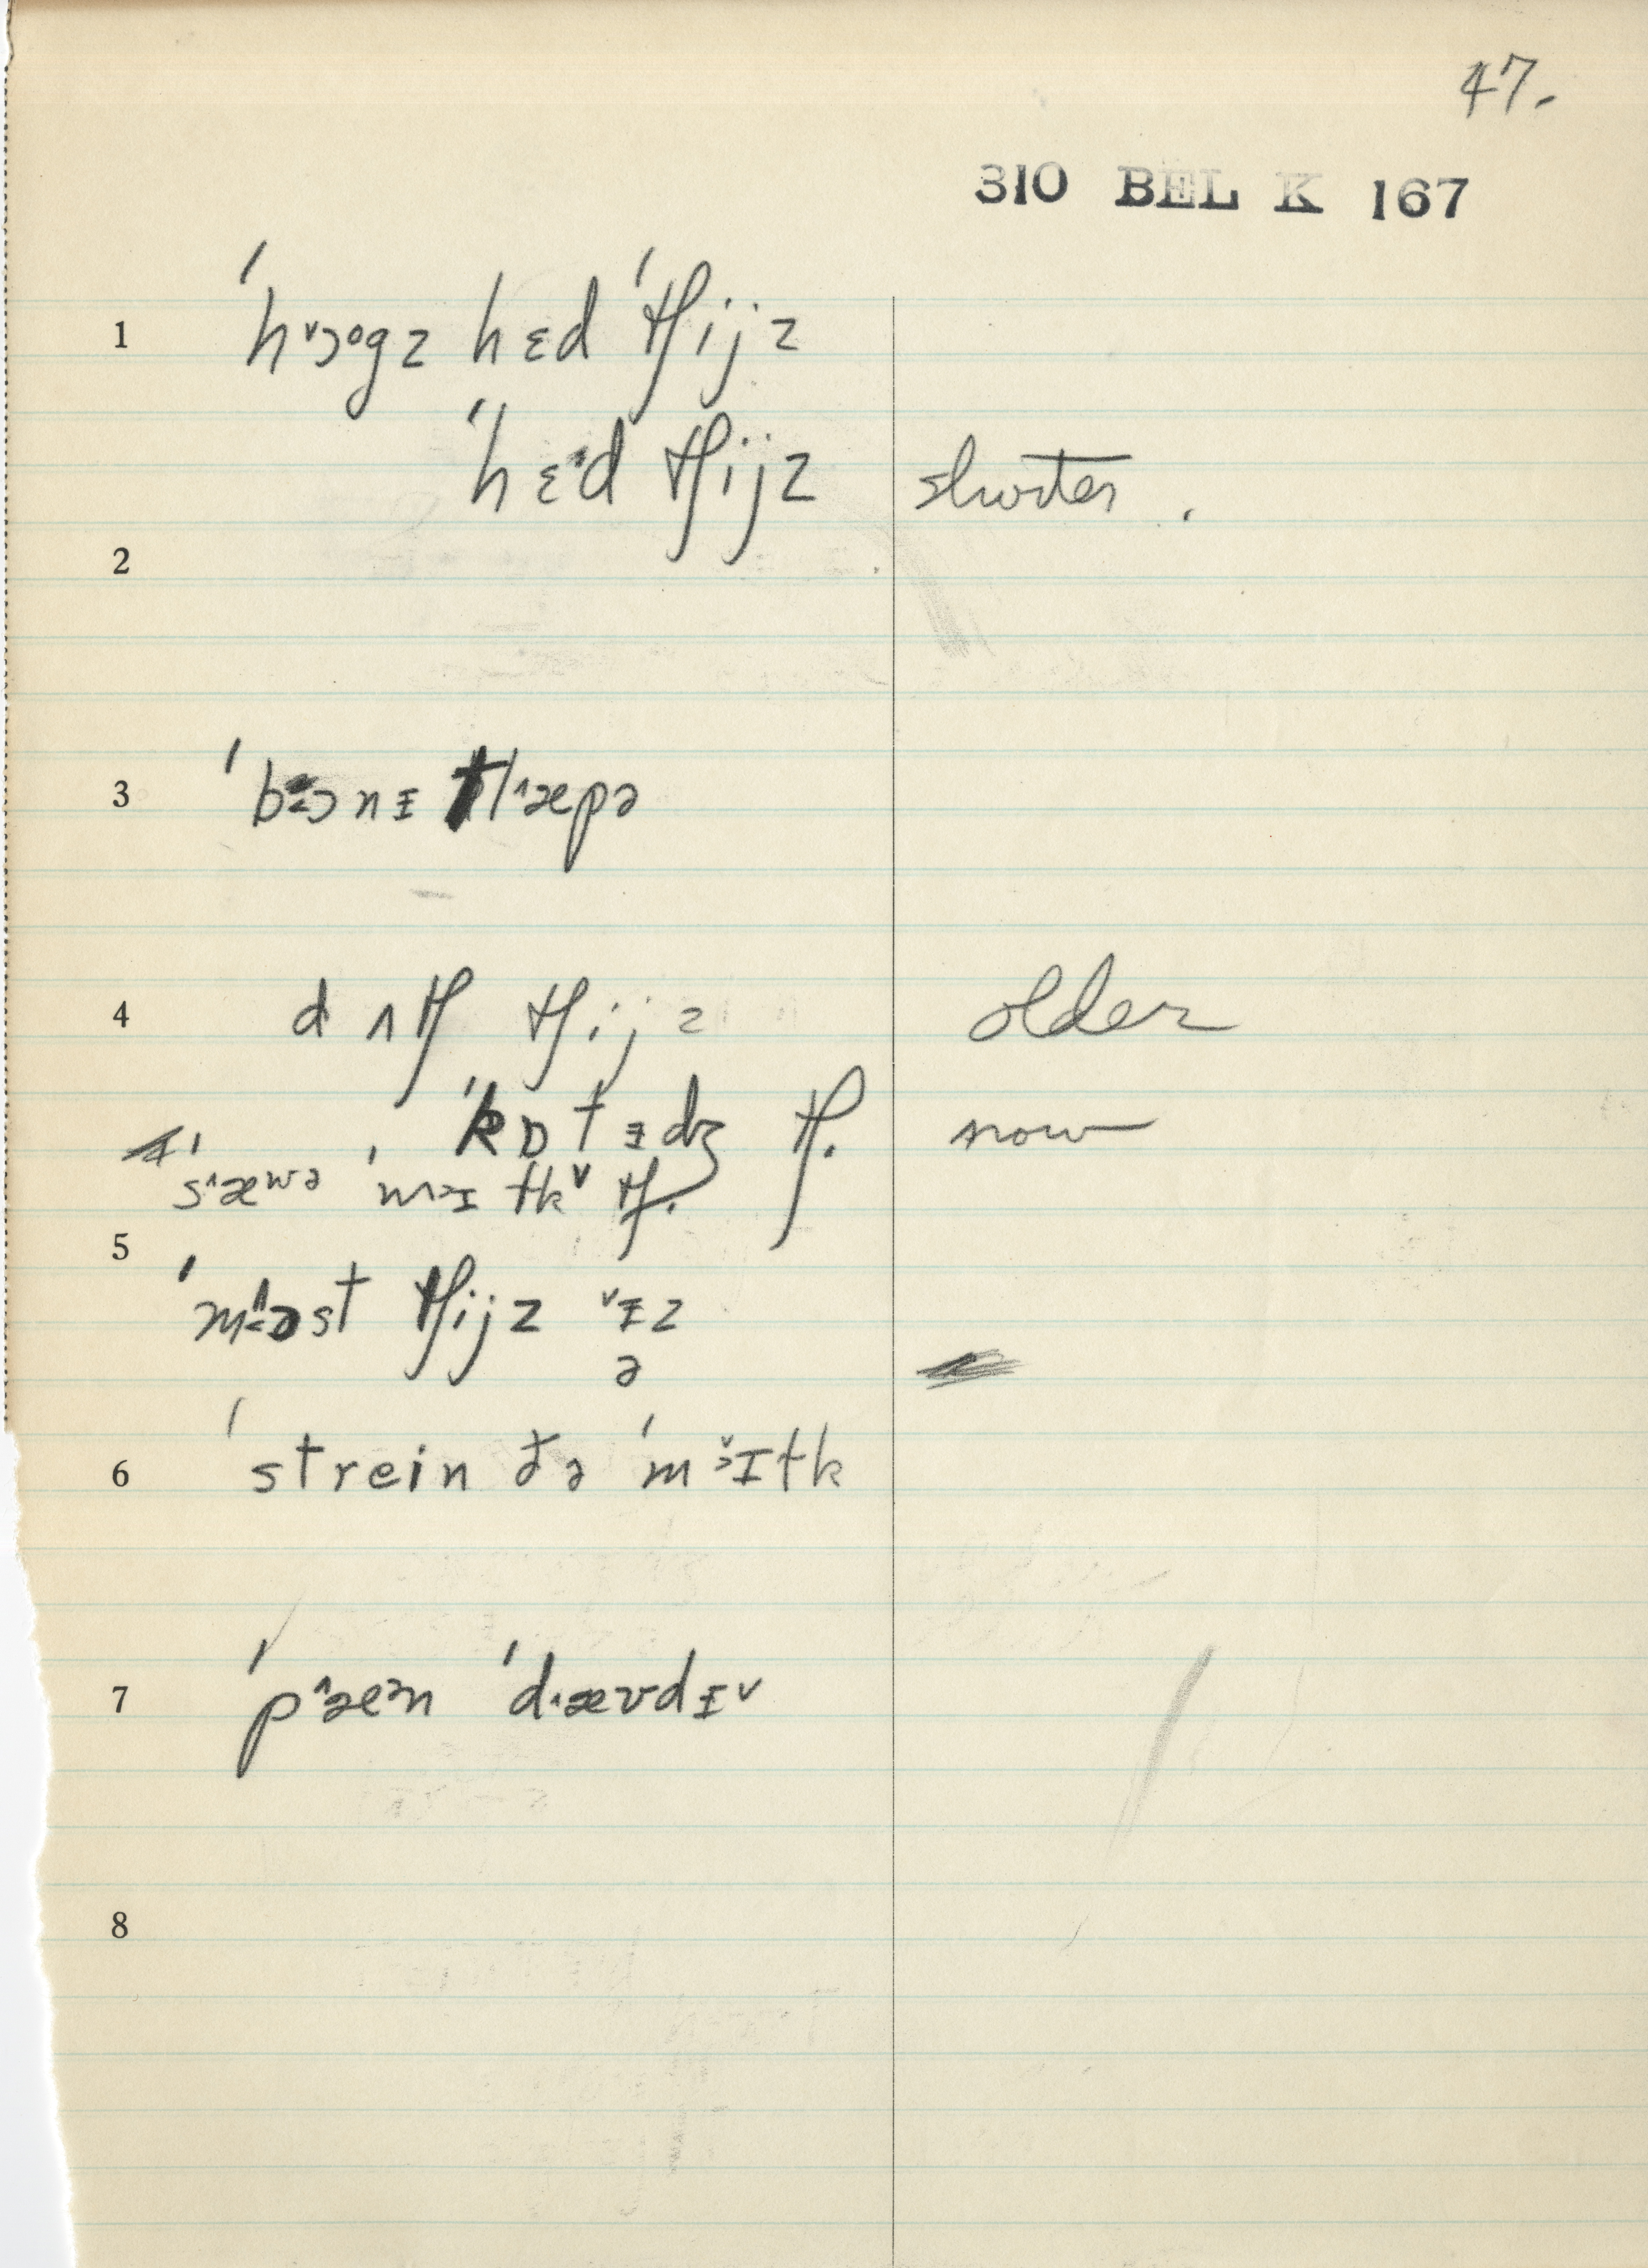 47.
310 BEL K 167
1 ˈhɔ˅ogz hɛd ˈtʃijz
ˈhɛᵊd tʃijz shorter.
2
3 ˈbɔnɪ tl˄æpə
4 d ʌtʃ tʃijz older
ˈkɒtɪdʒ tʃ. now
ˈs˄æʷə ˈmɪtk˅ tʃ.
5 ˈmost tʃijz ˅ɪz
ə
6 ˈstrein ðə ˈmɪtk
7 ˈp˄æᵊn ˈd˄ævdɪ˅
8